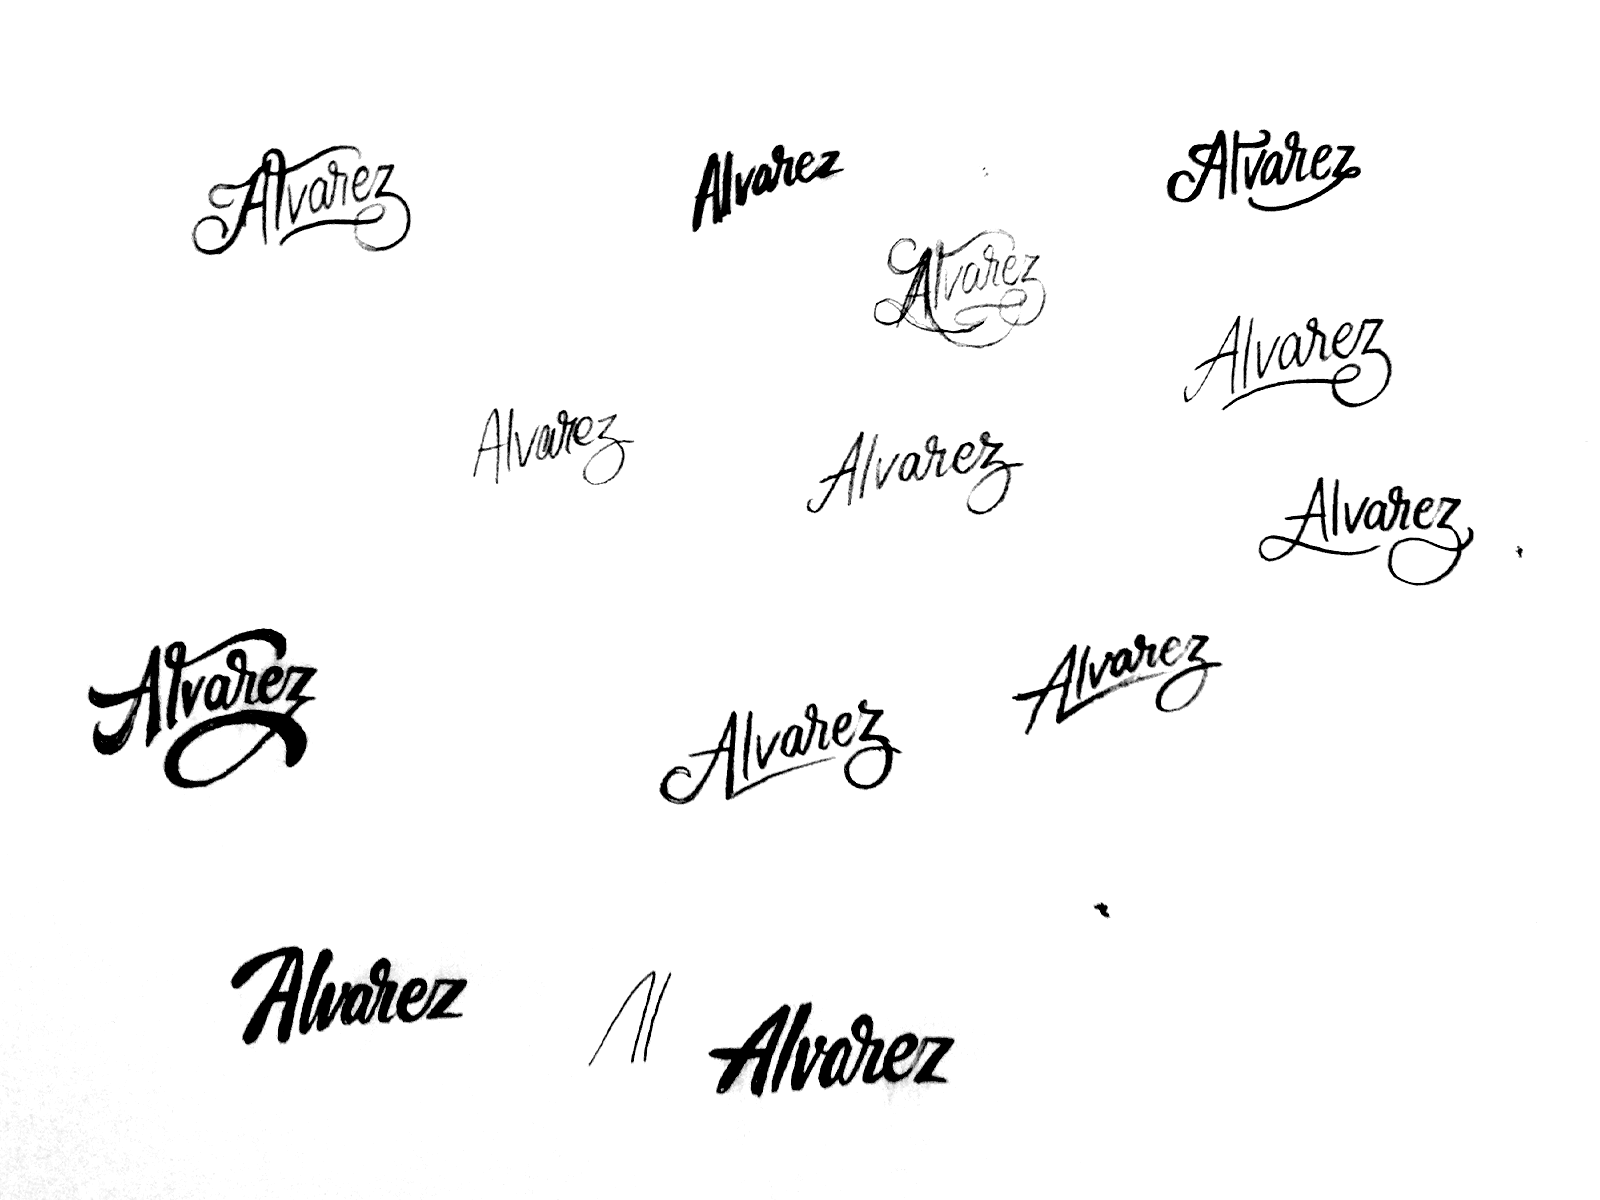 Alvarez
Alvarez
Alvarez
Alvarez
Alvarez
Alvarez
Alvarez
Alvarez
Alvarez
Alvarez
Alvarez
Alvarez
Al
Alvarez